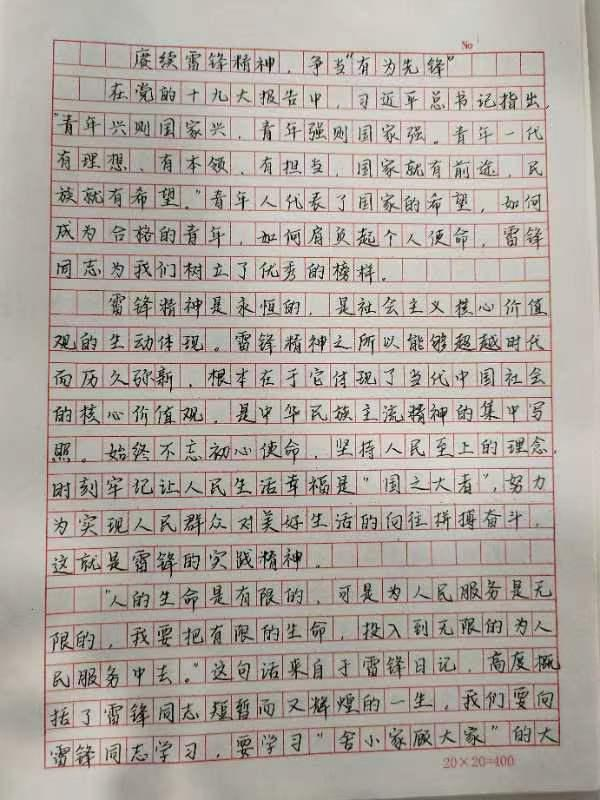 No
赓续雷锋精神，争当“有为先锋”
在党的十九大报告中，习近平总书记指出，
“青年兴则国家兴，青年强则国家强。青年一代
有理想、有本领、有担当，国家就有前途，民
族就有希望。”青年人代表了国家的希望，如何
成为合格的青年，如何肩负起个人使命，雷锋
同志为我们树立了优秀的榜样。
雷锋精神是永恒的，是社会主义核心价值
观的生动体现。雷锋精神之所以能够超越时代
而历久弥新，根本在于它体现了当代中国社会
的核心价值观，是中华民族主流精神的集中写
照。始终不忘初心使命，坚持人民至上的理念，
时刻牢记让人民生活幸福是“国之大者”，努力
为实现人民群众对美好生活的向往拼搏奋斗，
这就是雷锋的实践精神。
“人的生命是有限的，可是为人民服务是无
限的，我要把有限的生命，投入到无限的为人
民服务中去。”这句话来自于雷锋日记，高度概
括了雷锋同志短暂而又辉煌的一生，我们要向
雷锋同志学习，要学习“舍小家顾大家”的大
20×20=400